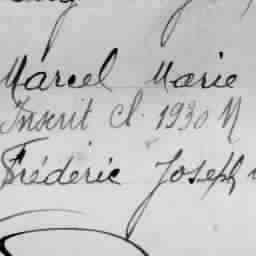 Marcel Marie
Inscrit cl. 1930 N
Fréderic Joseph